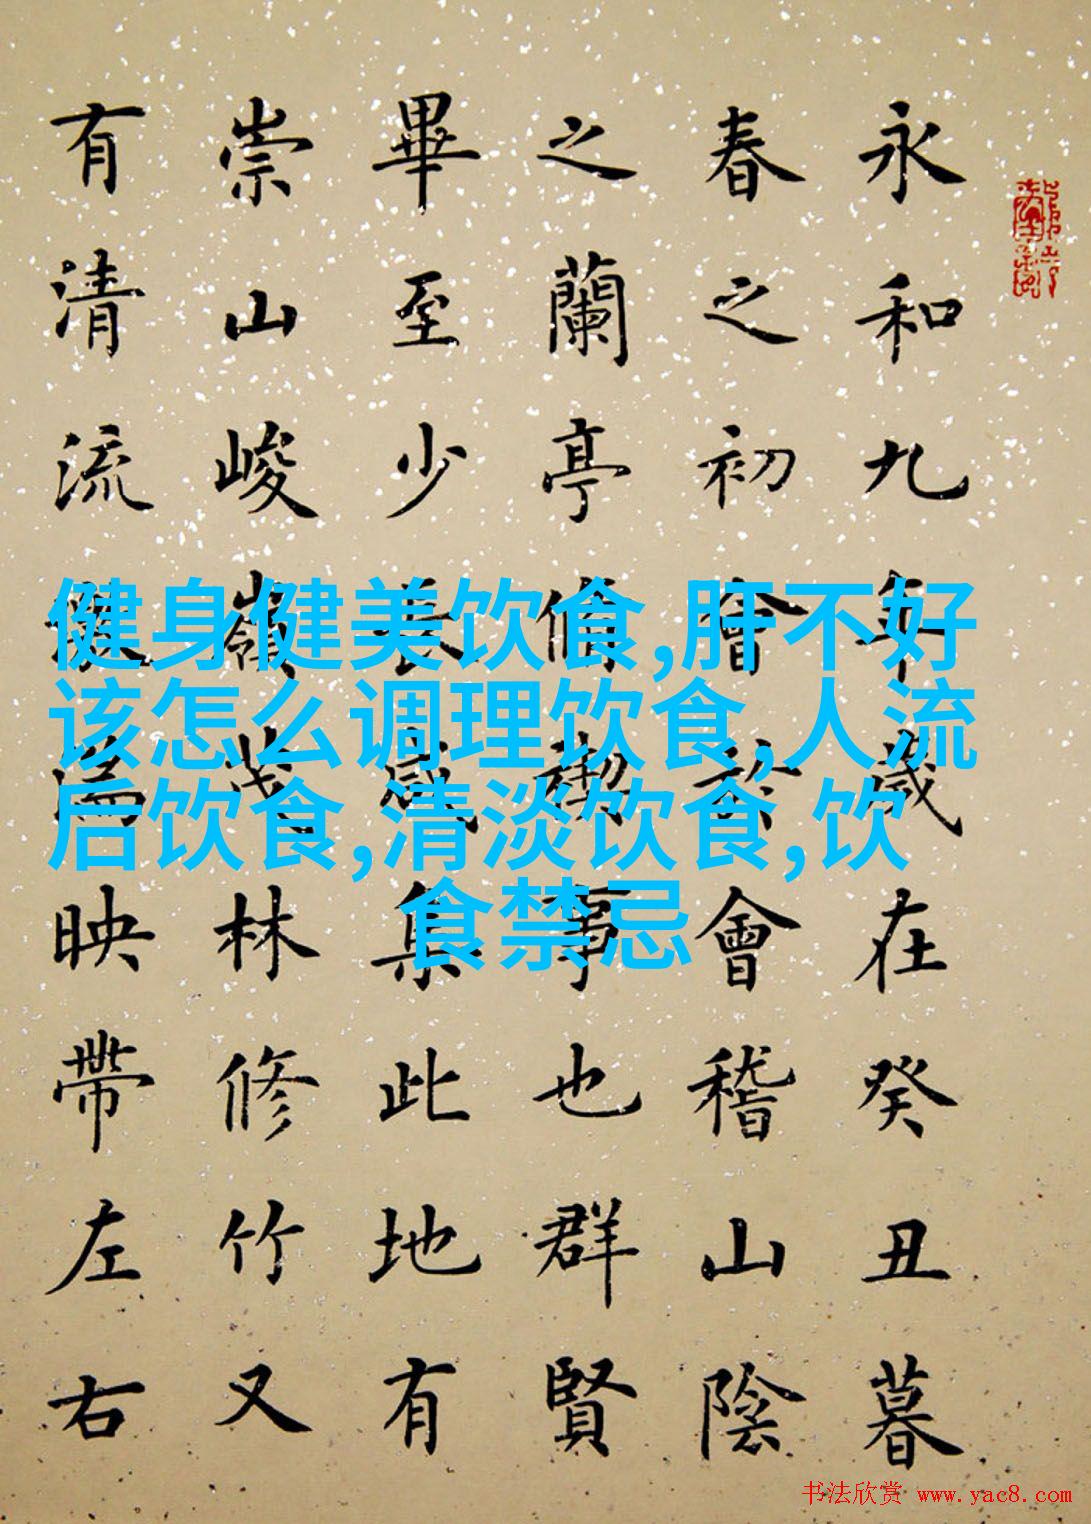 永和九年歲在癸丑暮
春之初會於會稽山陰
之蘭亭脩禊事也群賢
畢至少長咸集此地有
崇山峻嶺茂林修竹又
有清流激湍映帶左右
健身健美饮食,肝不好
该怎么调理饮食,人流
后饮食,清淡饮食,饮
食禁忌
书法欣赏 www.yac8.com